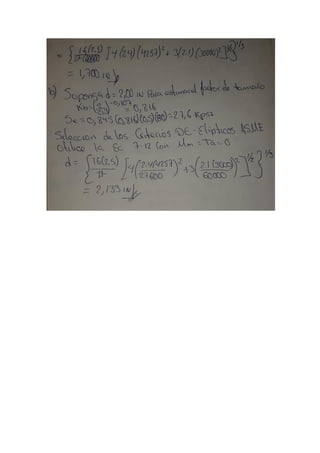 = { 16(2.5) / π(70000) [4(2.4)(4257)² + 3(2.1)(30000)²]^½ }^⅓
= 1,700 in
b) Suponga d = 2,00 in Para estimar el factor de tamaño
Kb = (2/0.30)^-0.107 = 0,816
Se = 0,845(0,816)(0,5)(80) = 27,6 Kpsi
Seleccion de los Criterios DE-Elipticos ASME
Utilice la Ec 7-12 Con Mm = Ta = 0
d = { 16(2.5) / π [4(2.4(4257) / 27600)² + 3(2.1(3000) / 60000)²]^½ }^⅓
= 2,133 in